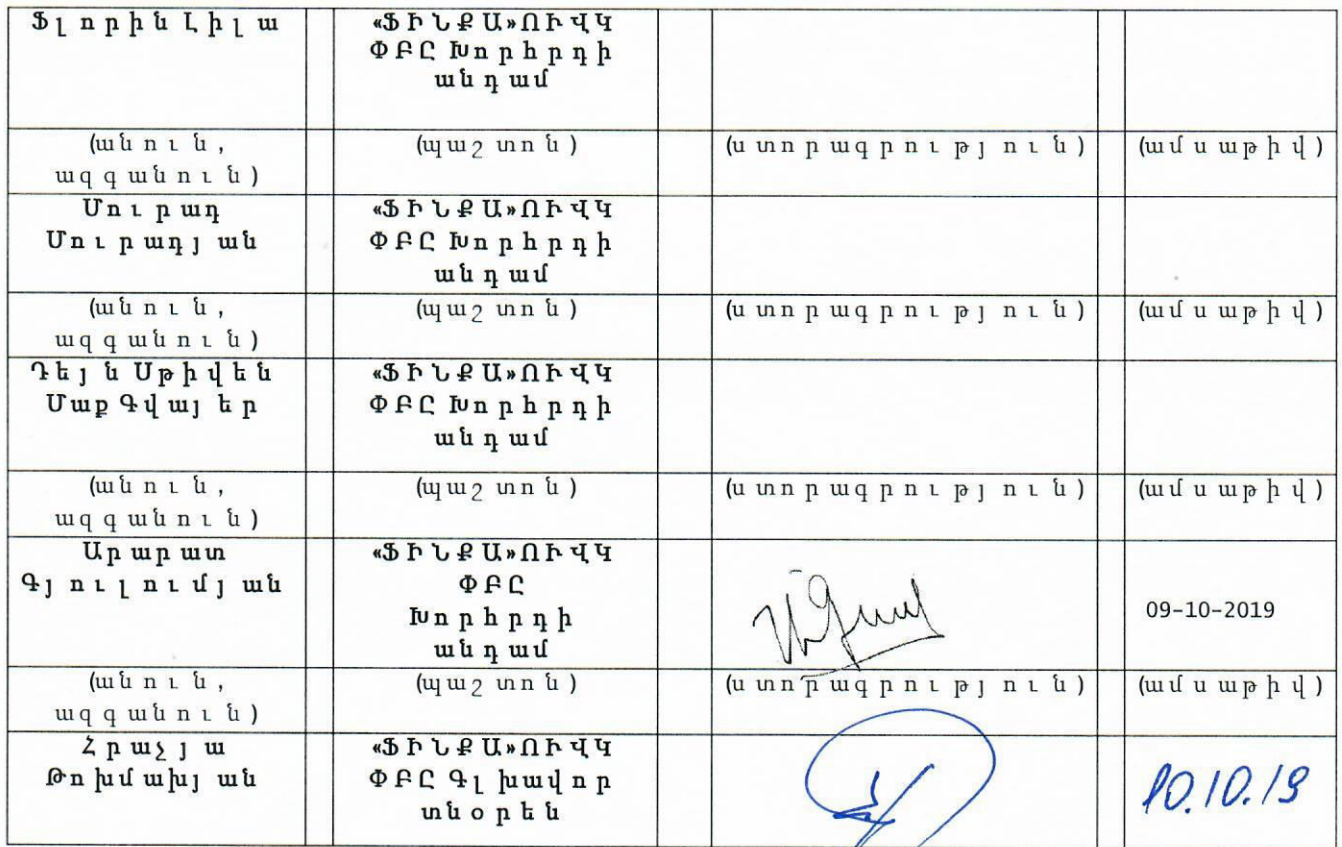 Ֆլորին Լիլա
«ՖԻՆՔԱ»ՈՒՎԿ
ՓԲԸ Խորհրդի
անդամ
(անուն,
ազգանուն)
(պաշտոն)
(ստորագրություն)
(ամսաթիվ)
Մուրադ
Մուրադյան
«ՖԻՆՔԱ»ՈՒՎԿ
ՓԲԸ Խորհրդի
անդամ
(անուն,
ազգանուն)
(պաշտոն)
(ստորագրություն)
(ամսաթիվ)
Դեյն Սթիվեն
Մաք Գվայեր
«ՖԻՆՔԱ»ՈՒՎԿ
ՓԲԸ Խորհրդի
անդամ
(անուն,
ազգանուն)
(պաշտոն)
(ստորագրություն)
(ամսաթիվ)
Արարատ
Գյուլումյան
«ՖԻՆՔԱ»ՈՒՎԿ
ՓԲԸ
Խորհրդի
անդամ
09-10-2019
(անուն,
ազգանուն)
(պաշտոն)
(ստորագրություն)
(ամսաթիվ)
Հրաչյա
Թոխմախյան
«ՖԻՆՔԱ»ՈՒՎԿ
ՓԲԸ Գլխավոր
տնօրեն
10.10.19